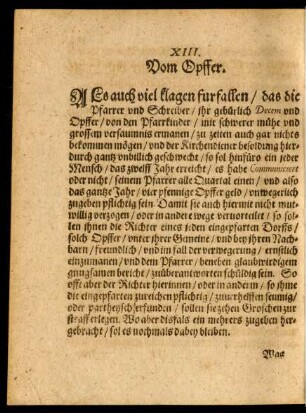 XIII.
Vom Opffer.
Als auch viel klagen furfallen / das die
Pfarrer vnd Schreiber / ihr gebürlich Decem vnd
Opffer / von den Pfarrkinder / mit schwerer mühe vnd
grossem versaumnis ermanen / zu zeiten auch gar nichts
bekommen mögen / vnd der Kirchendiener besoldung hier-
durch gantz vnbillich geschwecht / so sol hinfüro ein jeder
Mensch / das zwelfft Jahr erreicht / es habe Communiciret
oder nicht / seinem Pfarrer alle Quartal einen / vnd also
das gantze Jahr / vier pfennige Opffer geld / vnwegerlich
zugeben pflichtig sein. Damit sie auch hiermit nicht mut-
willig vorzogen / oder in andere wege vervorteilet / so sol-
len ihnen die Richter eines jeden eingepfarten Dorffs /
solch Opffer / vnter jhrer Gemeine / vnd bey jhren Nach-
barn / freundlich / vnd im fall der verwegerung / ernstlich
einzumanen / vnd dem Pfarrer / beneben glaubwirdigem
gnugsamen bericht / zuüberantworten schüldig sein. So
offt aber der Richter hierinnen / oder in anderm / so jhme
die eingepfarten zureichen pflichtig / zuuerhelffen seumig /
oder partheysch erfunden / sollen sie zehen Groschen zur
straff erlegen. Wo aber disfals ein mehrers zugeben her-
gebracht / sol es nochmals dabey bleiben.
Was